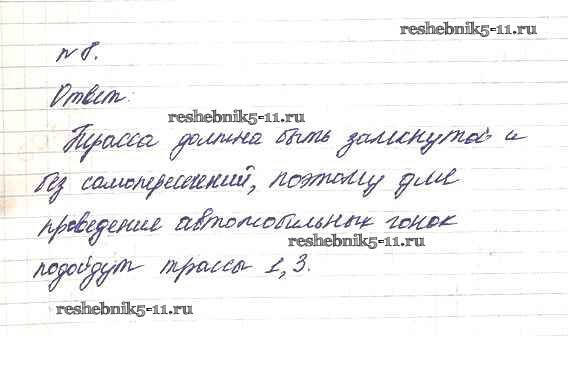 reshebnik5-11.ru
№ 8.
Ответ:
reshebnik5-11.ru
Трасса должна быть замкнутой и
без самопересечений, поэтому для
проведение автомобильных гонок
reshebnik5-11.ru
подойдут трассы 1, 3.
reshebnik5-11.ru